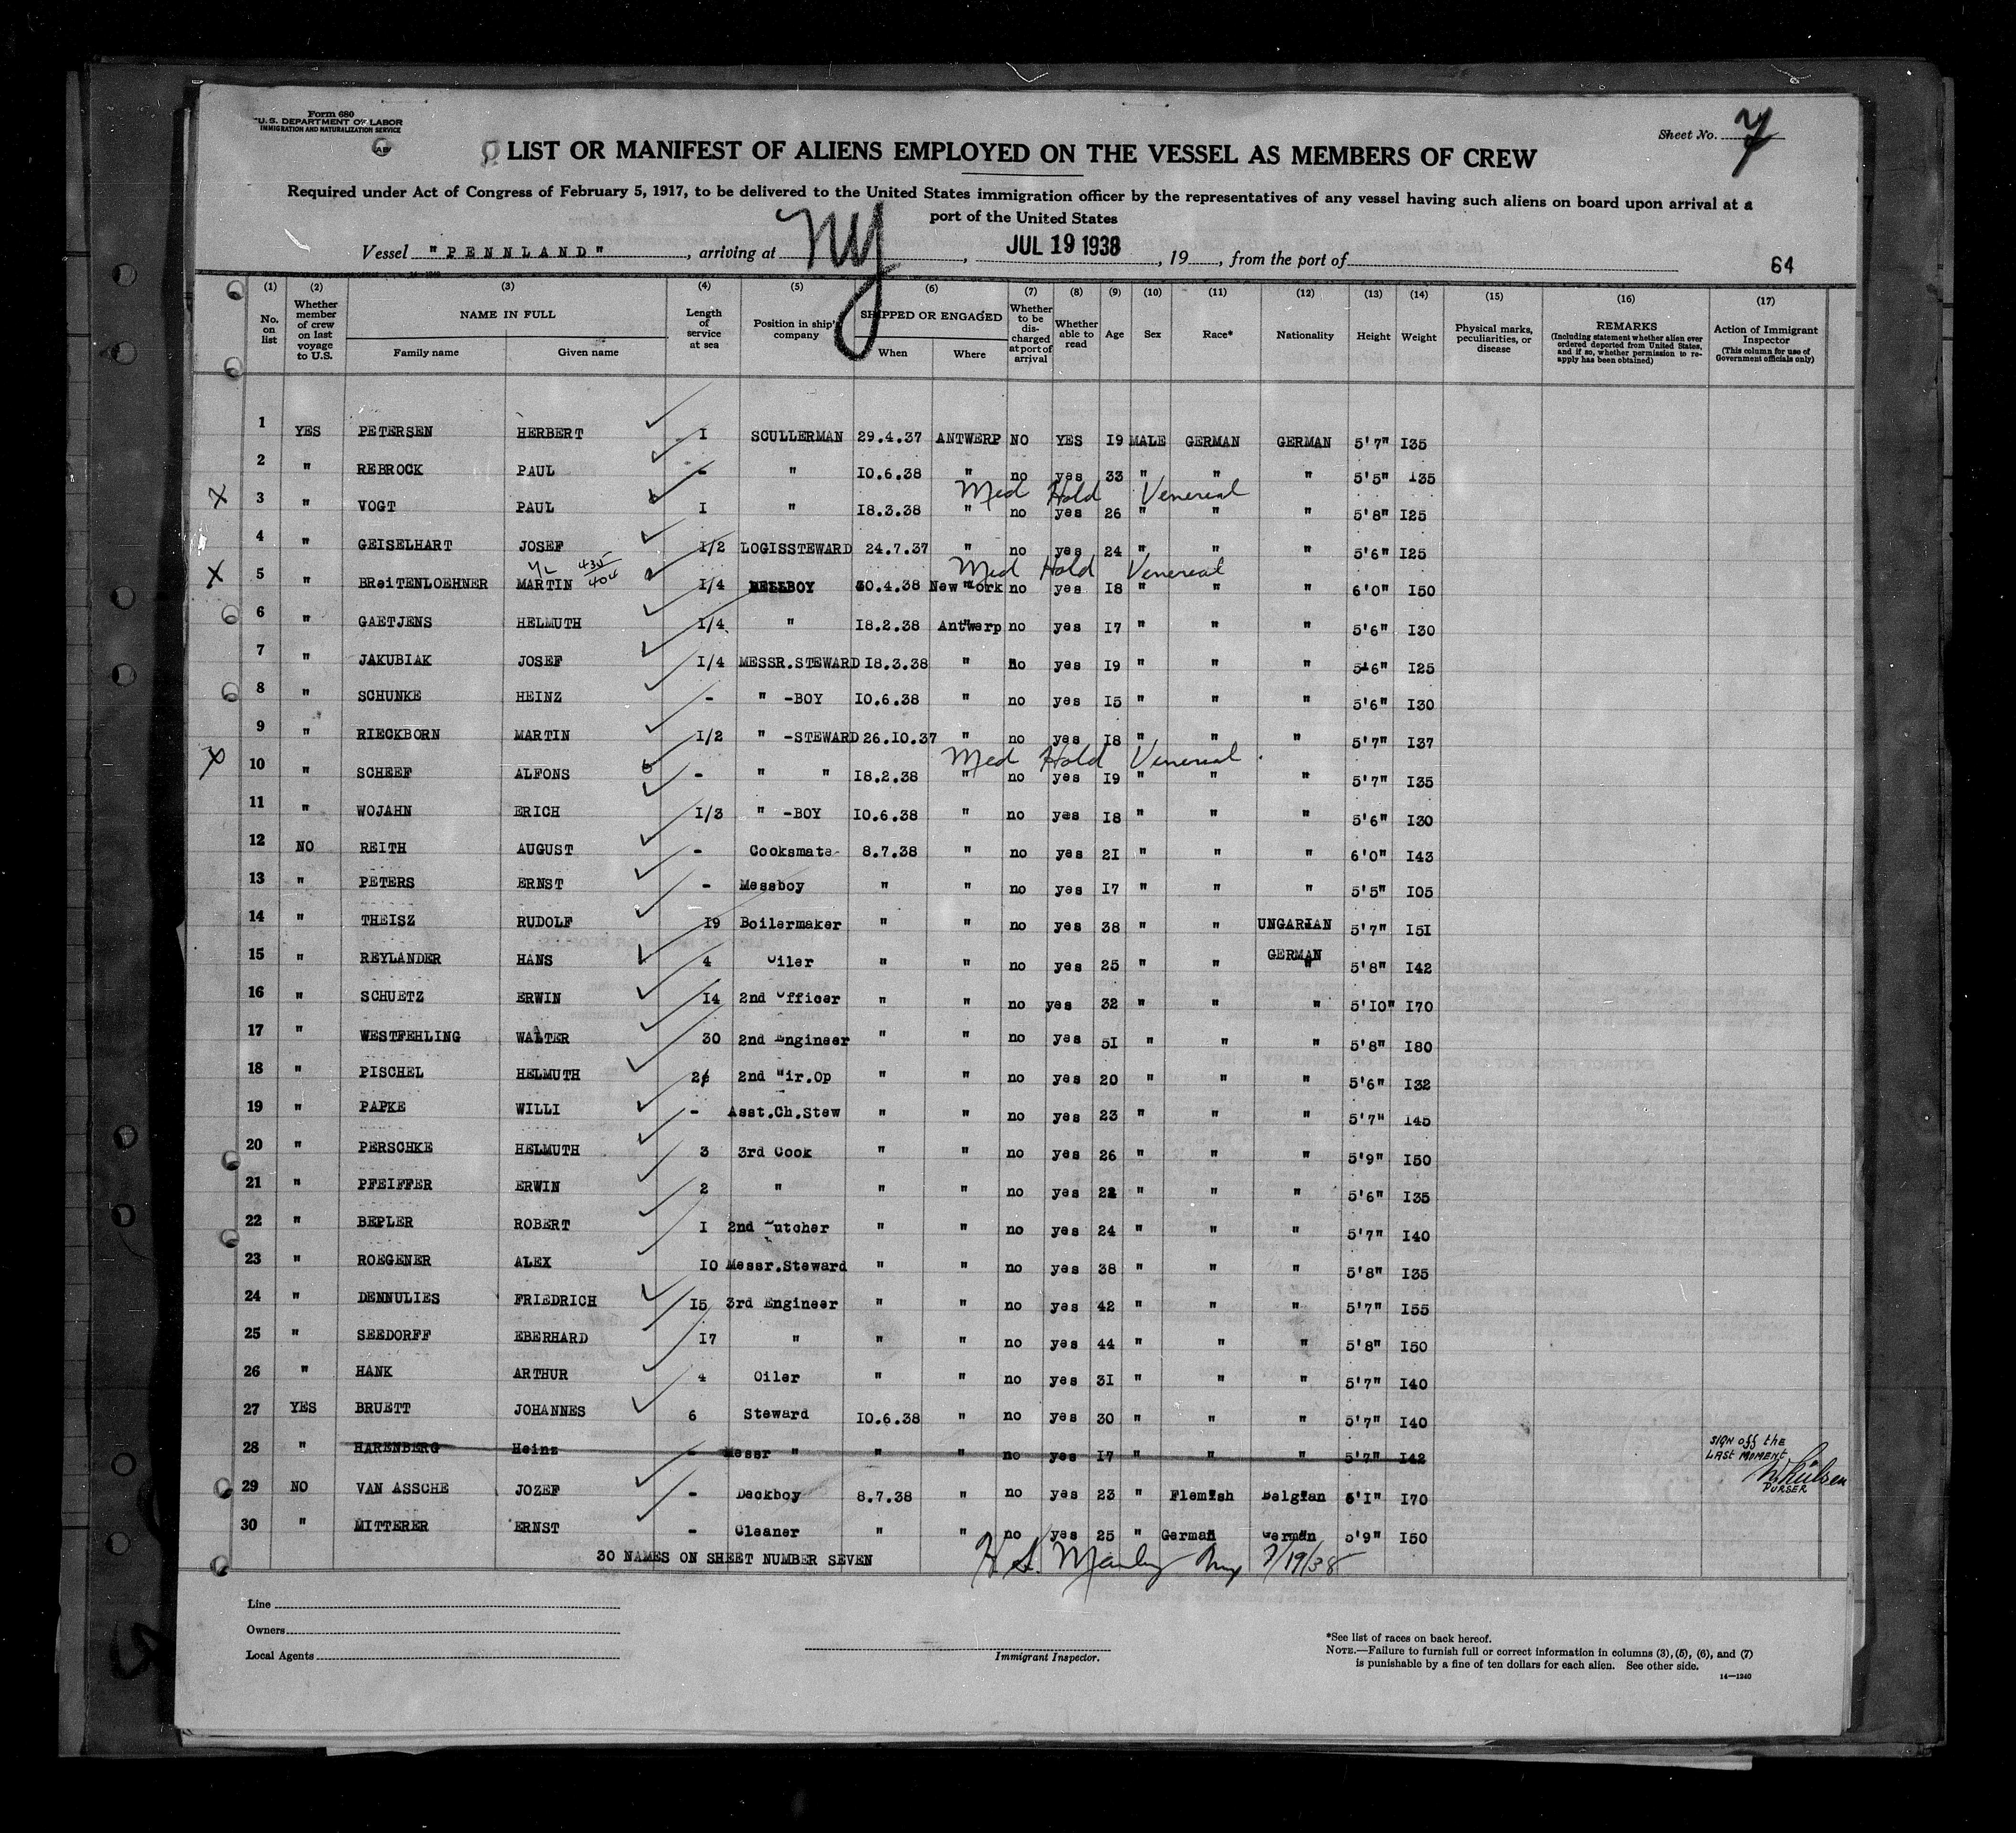 Form 680
U. S. DEPARTMENT OF LABOR
IMMIGRATION AND NATURALIZATION SERVICE
Sheet No. 7
LIST OR MANIFEST OF ALIENS EMPLOYED ON THE VESSEL AS MEMBERS OF CREW
Required under Act of Congress of February 5, 1917, to be delivered to the United States immigration officer by the representatives of any vessel having such aliens on board upon arrival at a
port of the United States
Vessel "PENNLAND", arriving at NY, JUL 19 1938, 19, from the port of
64
(1) (2) (3) (4) (5) (6) (7) (8) (9) (10) (11) (12) (13) (14) (15) (16) (17)
No. on list
Whether member of crew on last voyage to U.S.
NAME IN FULL
Family name Given name
Length of service at sea
Position in ship's company
SHIPPED OR ENGAGED
When Where
Whether to be discharged at port of arrival
Whether able to read
Age
Sex
Race*
Nationality
Height
Weight
Physical marks, peculiarities, or disease
REMARKS
(Including statement whether alien ever ordered deported from United States, and if so, whether permission to reapply has been obtained)
Action of Immigrant Inspector
(This column for use of Government officials only)
1 YES PETERSEN HERBERT I SCULLERMAN 29.4.37 ANTWERP NO YES I9 MALE GERMAN GERMAN 5'7" I35
2 " REBROCK PAUL - " I0.6.38 " no yes 33 " " " 5'5" I35
Med Hold Venereal
X 3 " VOGT PAUL I " I8.3.38 " no yes 26 " " " 5'8" I25
4 " GEISELHART JOSEF I/2 LOGISSTEWARD 24.7.37 " no yes 24 " " " 5'6" I25
435
404
Med Hold Venereal
X 5 " BReiTENLOEHNER MARTIN I/4 BELLBOY 30.4.38 New York no yes I8 " " " 6'0" I50
6 " GAETJENS HELMUTH I/4 " I8.2.38 Antwerp no yes I7 " " " 5'6" I30
7 " JAKUBIAK JOSEF I/4 MESSR.STEWARD I8.3.38 " no yes I9 " " " 5'6" I25
8 " SCHUNKE HEINZ - " -BOY I0.6.38 " no yes I5 " " " 5'6" I30
9 " RIECKBORN MARTIN I/2 " -STEWARD 26.I0.37 " no yes I8 " " " 5'7" I37
Med Hold Venereal
X 10 " SCHEEF ALFONS - " " I8.2.38 " no yes I9 " " " 5'7" I35
11 " WOJAHN ERICH I/3 " -BOY I0.6.38 " no yes I8 " " " 5'6" I30
12 NO REITH AUGUST - Cooksmate 8.7.38 " no yes 2I " " " 6'0" I43
13 " PETERS ERNST - Messboy " " no yes I7 " " " 5'5" I05
14 " THEISZ RUDOLF I9 Boilermaker " " no yes 38 " " UNGARIAN 5'7" I5I
15 " REYLANDER HANS 4 Oiler " " no yes 25 " " GERMAN " 5'8" I42
16 " SCHUETZ ERWIN I4 2nd Officer " " no yes 32 " " " 5'I0" I70
17 " WESTFEHLING WALTER 30 2nd Engineer " " no yes 5I " " " 5'8" I80
18 " PISCHEL HELMUTH 2 2nd Wir.Op " " no yes 20 " " " 5'6" I32
19 " PAPKE WILLI - Asst.Ch.Stew " " no yes 23 " " " 5'7" I45
20 " PERSCHKE HELMUTH 3 3rd Cook " " no yes 26 " " " 5'9" I50
21 " PFEIFFER ERWIN 2 " " " no yes 22 " " " 5'6" I35
22 " BEPLER ROBERT I 2nd Butcher " " no yes 24 " " " 5'7" I40
23 " ROEGENER ALEX I0 Messr.Steward " " no yes 38 " " " 5'8" I35
24 " DENNULIES FRIEDRICH I5 3rd Engineer " " no yes 42 " " " 5'7" I55
25 " SEEDORFF EBERHARD I7 " " " no yes 44 " " " 5'8" I50
26 " HANK ARTHUR 4 Oiler " " no yes 3I " " " 5'7" I40
27 YES BRUETT JOHANNES 6 Steward I0.6.38 " no yes 30 " " " 5'7" I40
28 " HARENBERG Heinz - Messr " " " no yes I7 " " " 5'7" I42
SIGN off the
LAST MOMENT
PURSER
29 NO VAN ASSCHE JOZEF - Deckboy 8.7.38 " no yes 23 " Flemish Belgian 6'I" I70
30 " MITTERER ERNST - Cleaner " " no yes 25 " German German 5'9" I50
30 NAMES ON SHEET NUMBER SEVEN
H. S. Manley 7/19/38
Line
Owners
Local Agents
Immigrant Inspector.
*See list of races on back hereof.
NOTE.—Failure to furnish full or correct information in columns (3), (5), (6), and (7)
is punishable by a fine of ten dollars for each alien. See other side.
14—1240